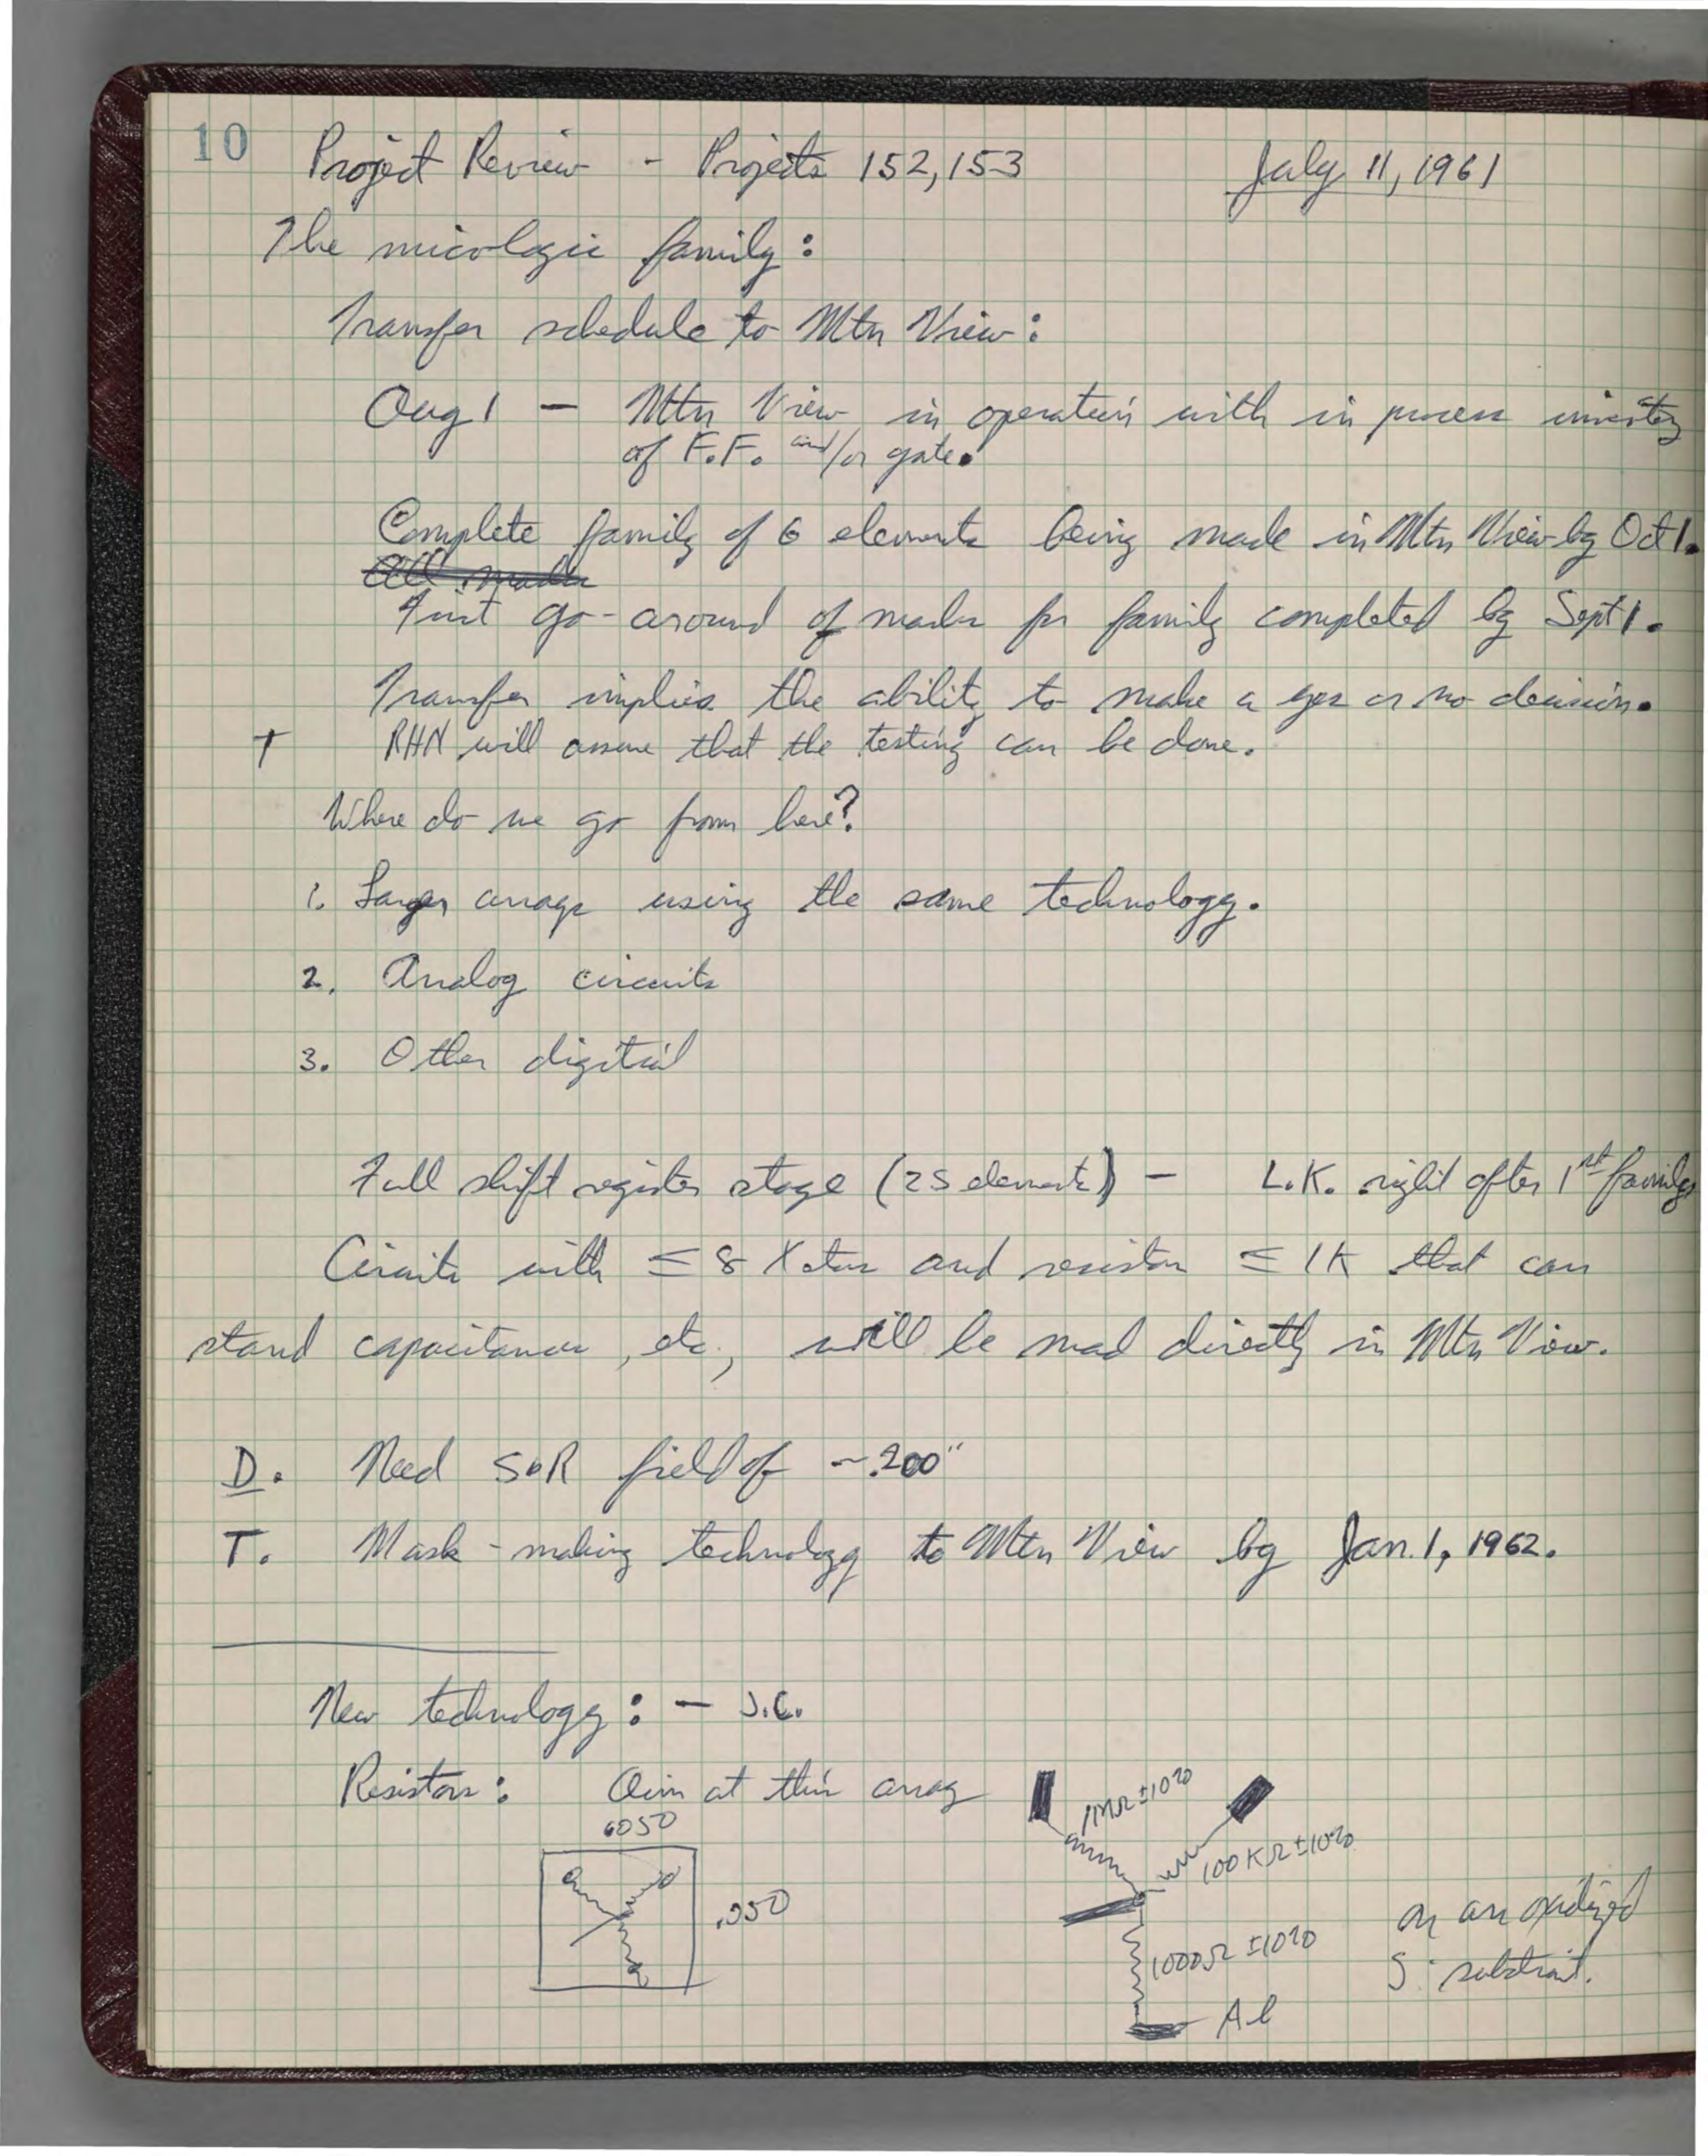 10 Project Review - Projects 152,153 July 11, 1961
The micologic family:
Transfer schedule to Mtn View:
Aug 1 — Mtn View in operation with in process inventory
of F.F. and/or gate.
Complete family of 6 elements being made in Mtn View by Oct 1.
All masks
First go-around of masks for family completed by Sept 1.
Transfer implies the ability to make a yes or no decision.
T RHN will assure that the testing can be done.
Where do we go from here?
1. Larger arrays using the same technology.
2. Analog circuits
3. Other digital
Full shift register stage (25 elements) — L.K. right after 1st family
Circuits with ≤ 8 Xstors and resistors ≤ 1K that can
stand capacitance, etc., will be mad directly in Mtn View.
D. Need S&R field of ~.200"
T. Mask-making technology to Mtn View by Jan. 1, 1962.
New technology: — J.C.
Resistors: Aim at this array
.050
.050
1MΩ ±10%
100KΩ ±10%
1000Ω ±10%
Al
on an oxidized
Si substrait.